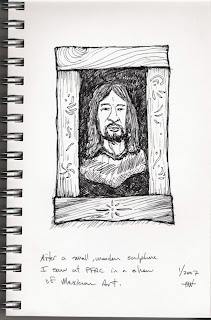 After a small wooden sculpture
I saw at PFAC in a show
of Mexican Art.
1/2007